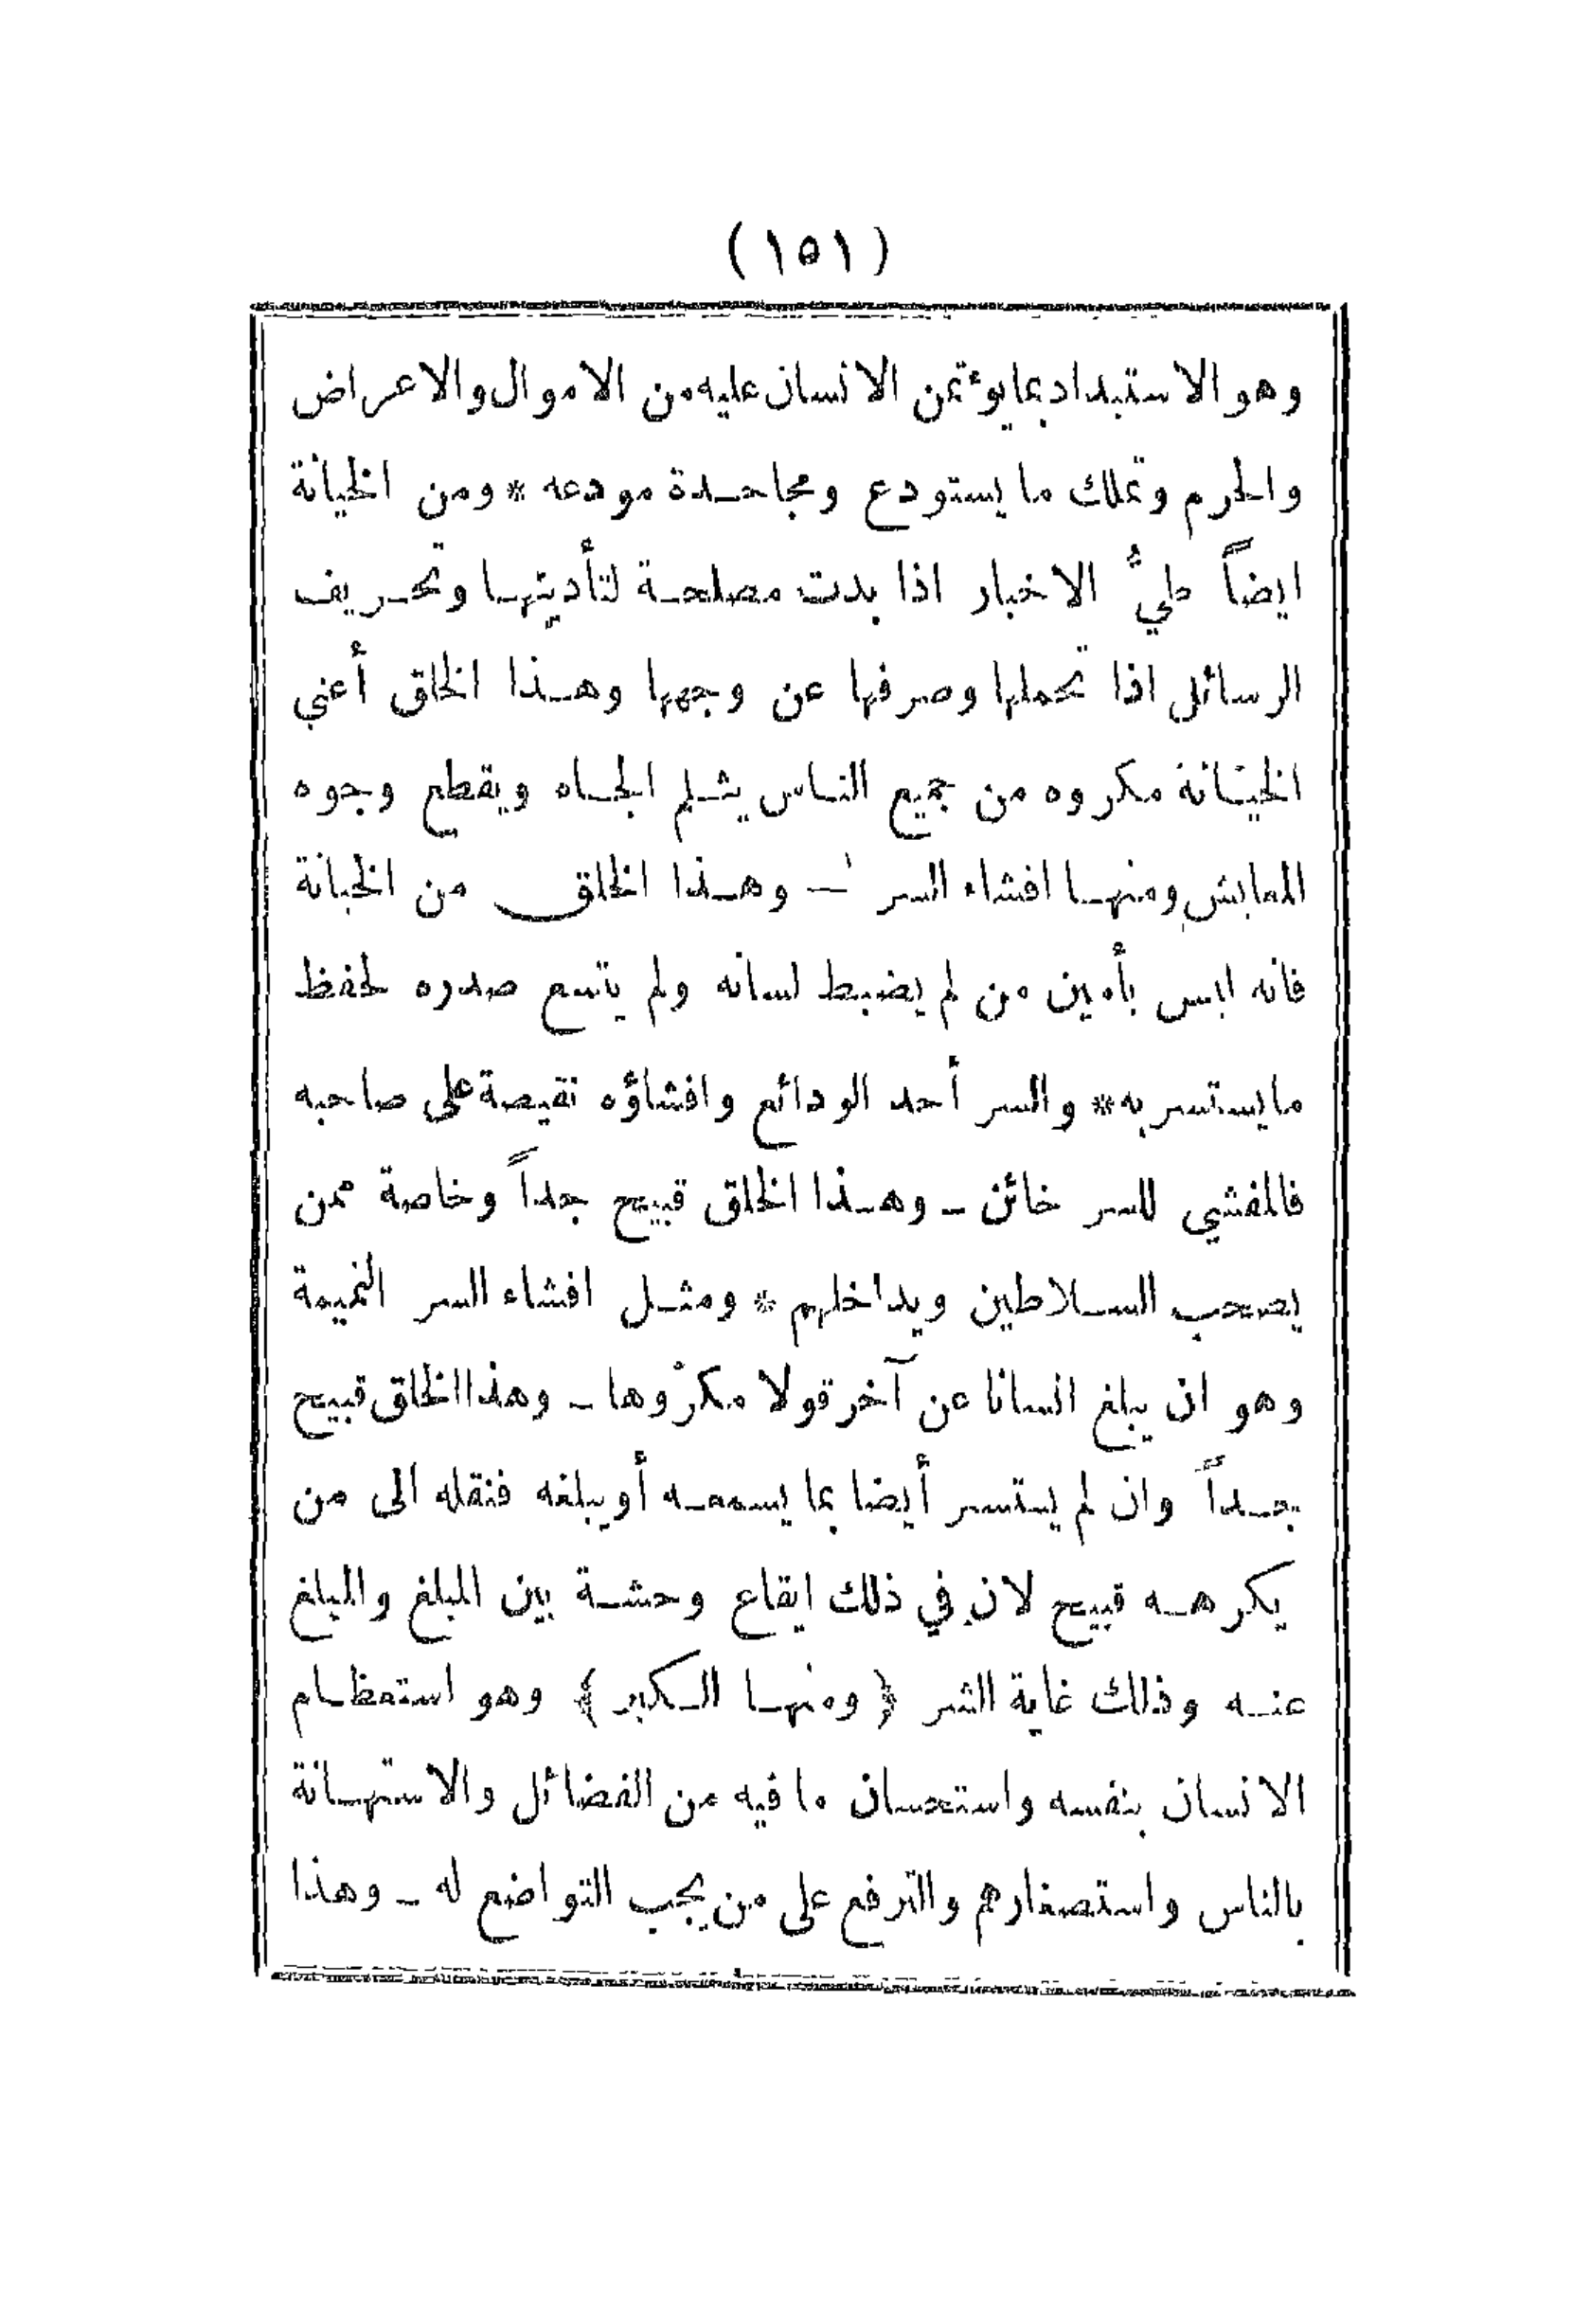 (١٥١)
وهو الاستبداد بما يوءتمن الانسان عليه من الاموال والاعراض
والحرم وتملك ما يستودع ومجاحدة مودعه * ومن الخيانة
ايضاً طيُّ الاخبار اذا بدت مصلحة لتأديتها وتحريف
الرسائل اذا تحملها وصرفها عن وجهها وهذا الخلق أعني
الخيانة مكروه من جميع الناس يثلم الجاه ويقطع وجوه
المعايش ومنها افشاء السر — وهذا الخلق من الخيانة
فانه ليس بأمين من لم يضبط لسانه ولم يتسع صدره لحفظ
ما يستسر به * والسر أحد الودائع وافشاؤه نقيصة على صاحبه
فالمفشي للسر خائن - وهذا الخلق قبيح جداً وخاصة ممن
يصحب السلاطين ويداخلهم * ومثل افشاء السر النميمة
وهو ان يبلغ انسانا عن آخر قولا مكروها - وهذا الخلق قبيح
جداً وان لم يستسر أيضا بما يسمعه أو يبلغه فنقله الى من
يكرهه قبيح لان في ذلك ايقاع وحشة بين المبلغ والمبلغ
عنه وذلك غاية الشر ﴿ ومنها الكبر ﴾ وهو استعظام
الانسان بنفسه واستحسان ما فيه من الفضائل والاستهانة
بالناس واستصغارهم والترفع على من يجب التواضع له - وهذا